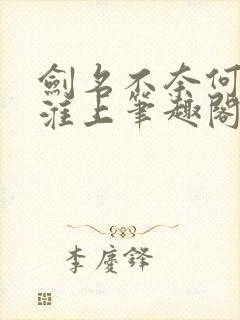 劍名不奈何
淮上筆趣閣
李慶鋒